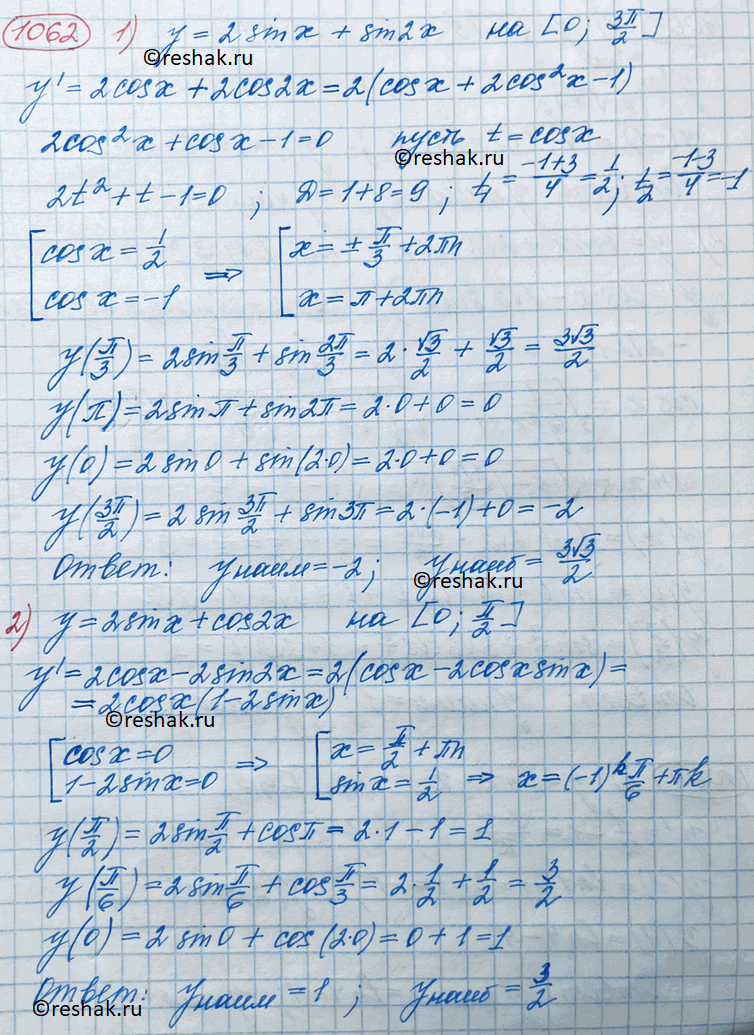 1062 1) y = 2 sin x + sin 2x на [0; 3π/2]
©reshak.ru
y' = 2cos x + 2cos 2x = 2(cos x + 2cos²x - 1)
2cos²x + cos x - 1 = 0 пусть t = cos x
©reshak.ru
2t² + t - 1 = 0 ; D = 1 + 8 = 9 ; t₁ = (-1+3)/4 = 1/2 ; t₂ = (-1-3)/4 = -1
[cos x = 1/2 ⇒ [x = ± π/3 + 2πn
cos x = -1 x = π + 2πn
y(π/3) = 2sin π/3 + sin 2π/3 = 2·√3/2 + √3/2 = 3√3/2
y(π) = 2sin π + sin 2π = 2·0 + 0 = 0
y(0) = 2 sin 0 + sin(2·0) = 2·0 + 0 = 0
y(3π/2) = 2 sin 3π/2 + sin 3π = 2·(-1) + 0 = -2
Ответ: y наим = -2 ; y наиб = 3√3/2
©reshak.ru
2) y = 2sin x + cos 2x на [0; π/2]
y' = 2cos x - 2sin 2x = 2(cos x - 2cos x sin x) =
= 2cos x (1 - 2sin x)
©reshak.ru
[cos x = 0 ⇒ [x = π/2 + πn
1 - 2sin x = 0 sin x = 1/2 ⇒ x = (-1)ᵏ π/6 + πk
y(π/2) = 2sin π/2 + cos π = 2·1 - 1 = 1
y(π/6) = 2sin π/6 + cos π/3 = 2·1/2 + 1/2 = 3/2
y(0) = 2 sin 0 + cos (2·0) = 0 + 1 = 1
Ответ: y наим = 1 ; y наиб = 3/2
©reshak.ru
©reshak.ru